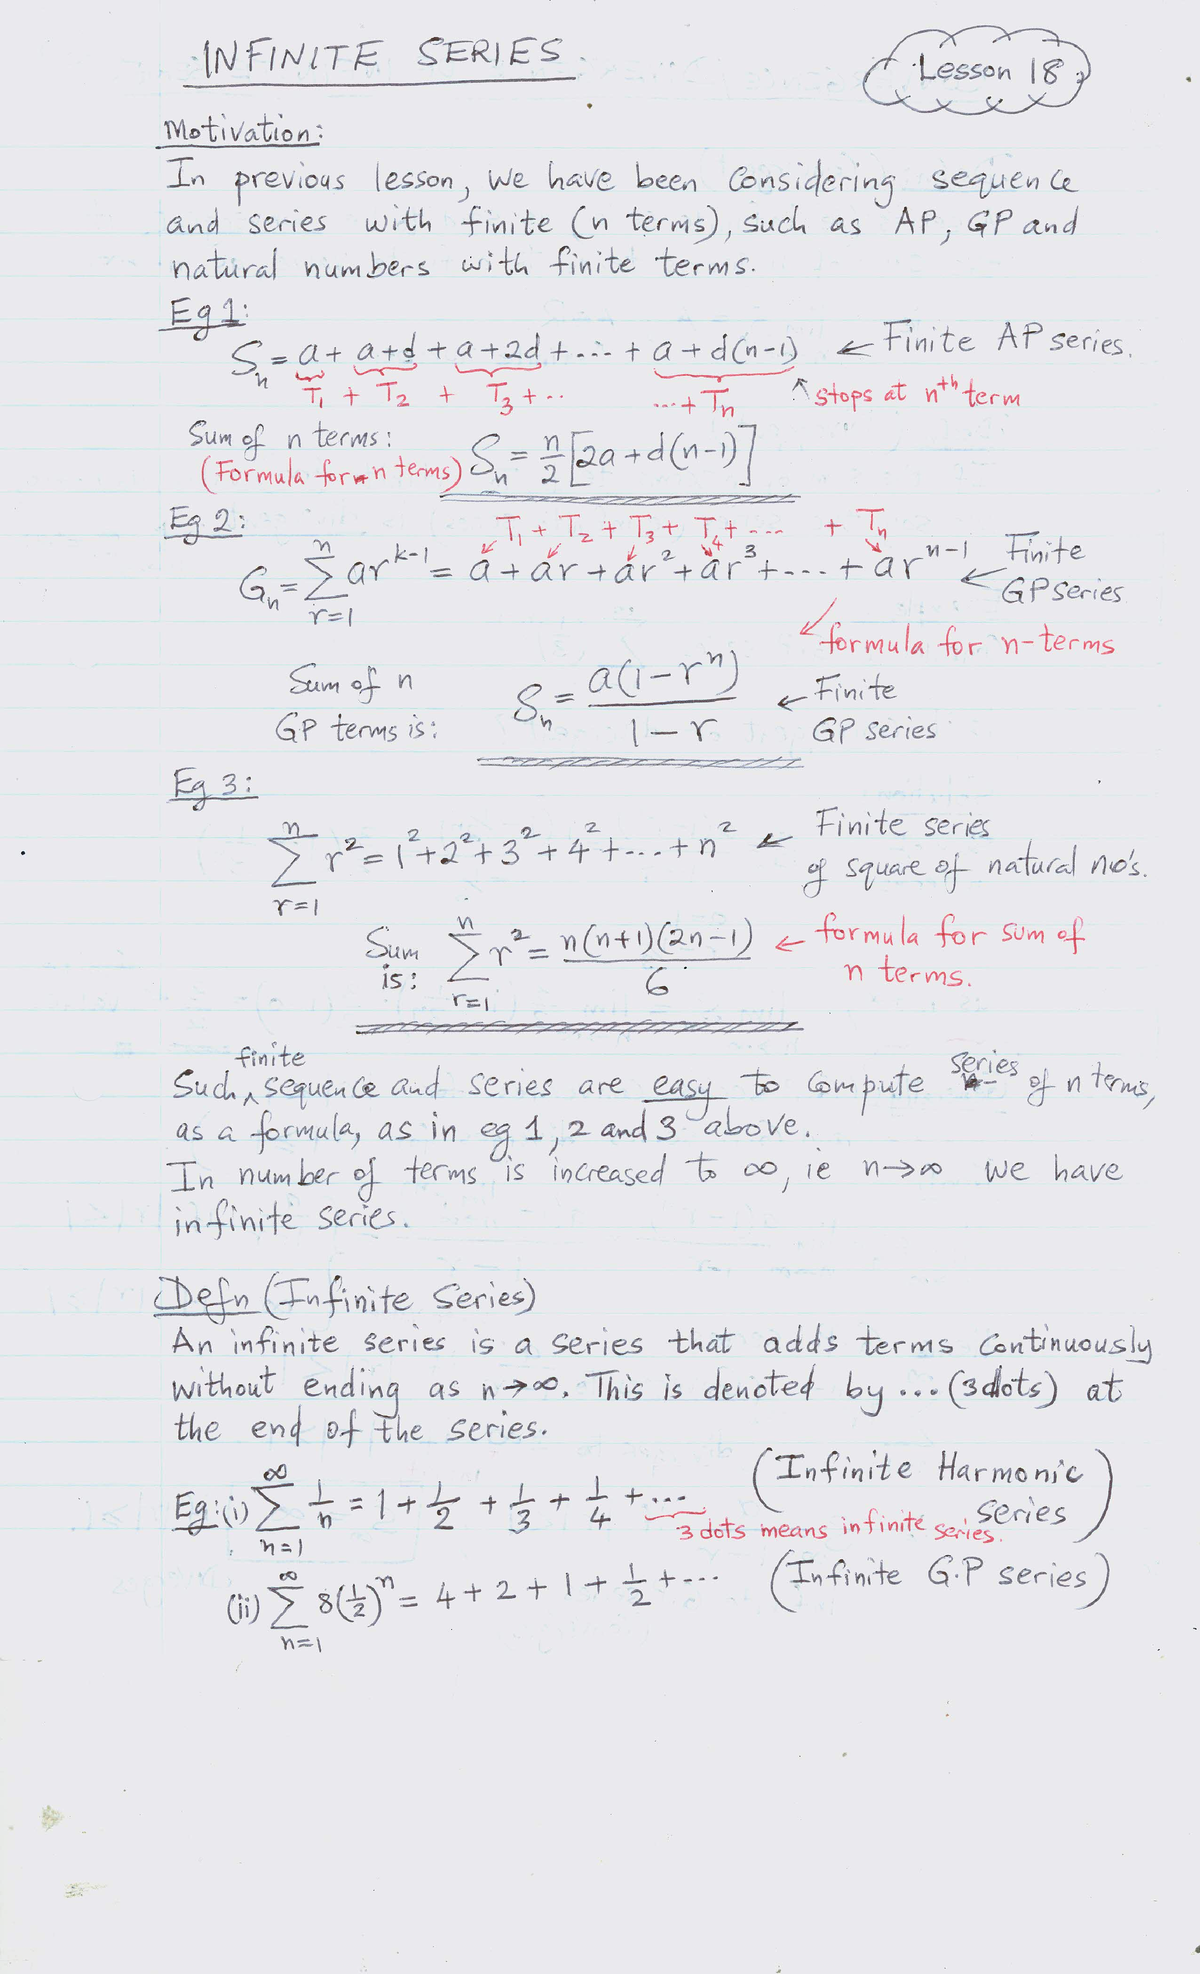 INFINITE SERIES.
Lesson 18
Motivation:
In previous lesson, we have been Considering sequence
and series with finite (n terms), such as AP, GP and
natural numbers with finite terms.
Eg 1:
Sₙ = a + a+d + a+2d + ... + a + d(n-1) ← Finite AP series.
T₁ + T₂ + T₃ + .. ...+ Tₙ ↖ stops at nᵗʰ term
Sum of n terms: Sₙ = n/2 [2a + d(n-1)]
(Formula for n terms)
Eg 2: T₁ + T₂ + T₃ + T₄ + ---- + Tₙ
Gₙ = ∑ⁿᵣ₌₁ arᵏ⁻¹ = a + ar + ar² + ar³ + .... + arⁿ⁻¹ ← Finite
GP series
formula for n-terms
Sum of n
GP terms is:
Sₙ = a(1-rⁿ) / 1-r ← Finite
GP series
Eg 3:
∑ⁿᵣ₌₁ r² = 1² + 2² + 3² + 4² + ... + n² ← Finite series
of square of natural no's.
Sum
is:
∑ⁿᵣ₌₁ r² = n(n+1)(2n-1) / 6 ← formula for sum of
n terms.
finite
Such ^ sequence and series are easy to Compute series of n terms,
as a formula, as in eg 1, 2 and 3 above.
In number of terms is increased to ∞, ie n→∞ we have
infinite series.
Defn (Infinite Series)
An infinite series is a series that adds terms Continuously
without ending as n→∞. This is denoted by ... (3 dots) at
the end of the series.
Eg:(i) ∑^∞ₙ₌₁ 1/n = 1 + 1/2 + 1/3 + 1/4 + ... (Infinite Harmonic
series)
3 dots means infinite series.
(ii) ∑^∞ₙ₌₁ 8(1/2)ⁿ = 4 + 2 + 1 + 1/2 + --- (Infinite G.P series)